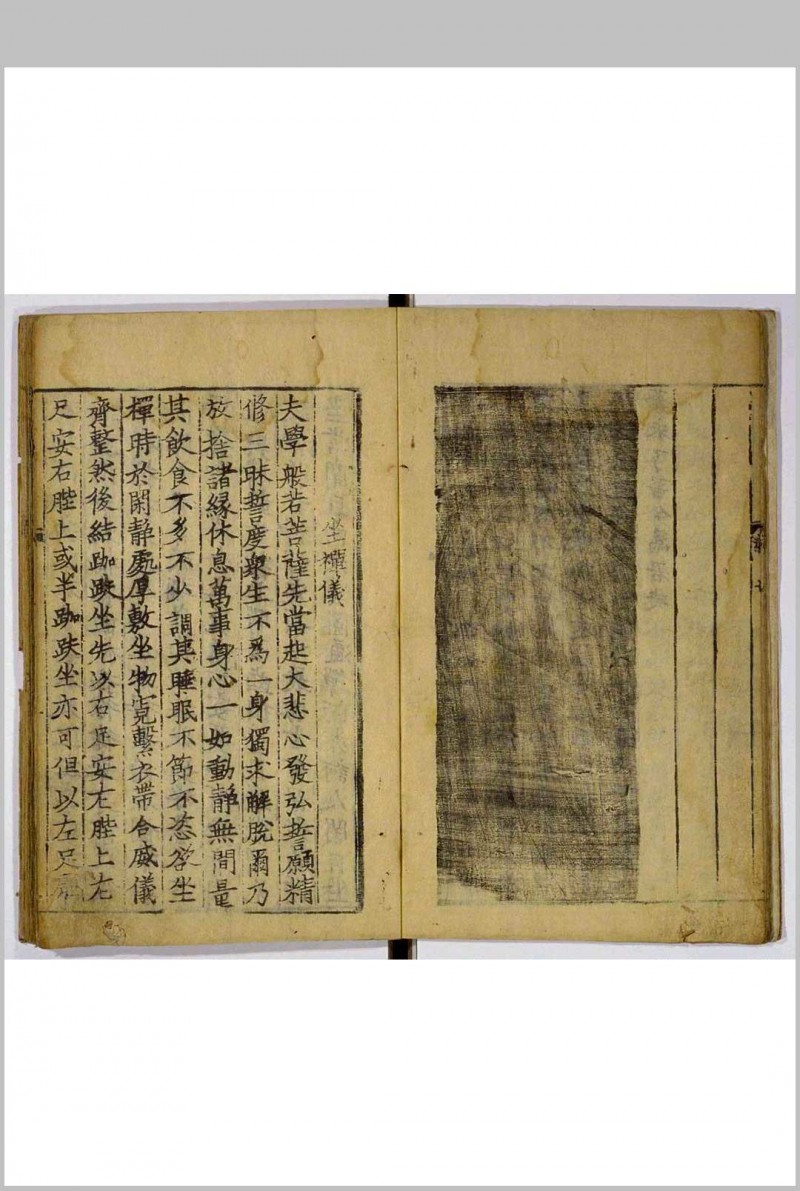 坐禪儀
夫學般若菩薩先當起大悲心發弘誓願精
修三昧誓度衆生不爲一身獨求解脫爾乃
放捨諸緣休息萬事身心一如動靜無間量
其飮食不多不少調其睡眠不節不恣欲坐
禪時於閑靜處厚敷坐物寬繫衣帶令威儀
齊整然後結跏趺坐先以右足安左䏶上左
足安右䏶上或半跏趺坐亦可但以左足